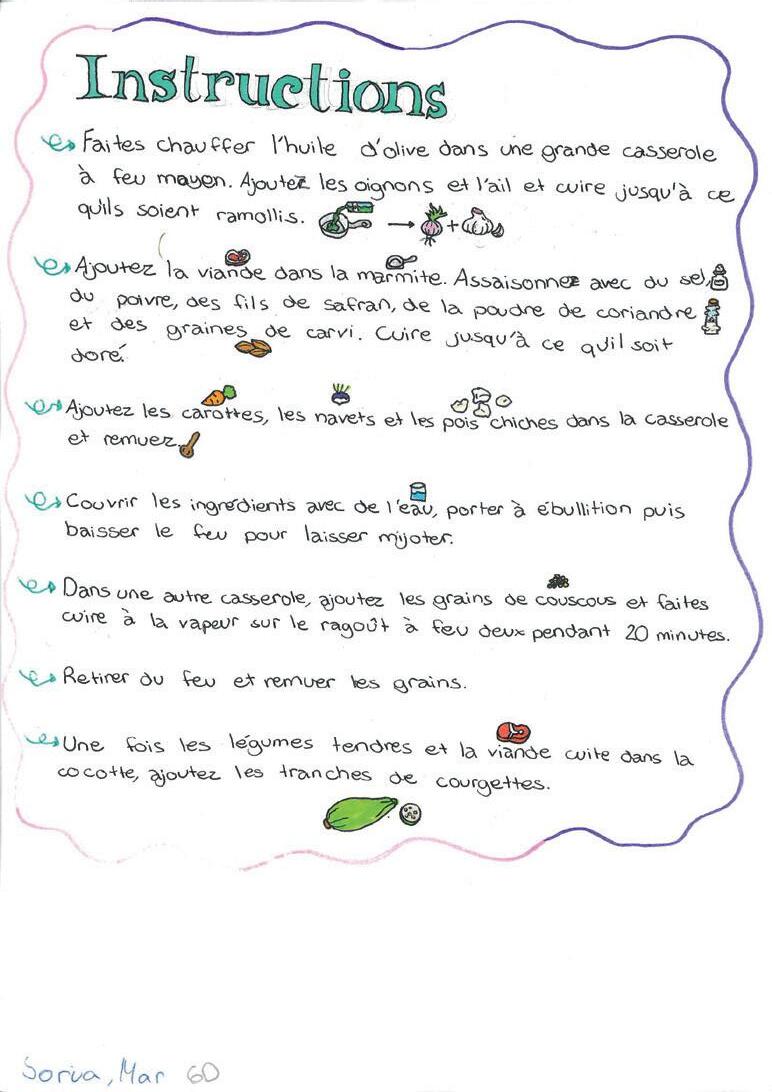 Instructions
Faites chauffer l'huile d'olive dans une grande casserole
à feu moyen. Ajoutez les oignons et l'ail et cuire jusqu'à ce
qu'ils soient ramollis.
Ajoutez la viande dans la marmite. Assaisonnez avec du sel,
du poivre, des fils de safran, de la poudre de coriandre
et des graines de carvi. Cuire jusqu'à ce qu'il soit
doré.
Ajoutez les carottes, les navets et les pois chiches dans la casserole
et remuez.
Couvrir les ingrédients avec de l'eau, porter à ébullition puis
baisser le feu pour laisser mijoter.
Dans une autre casserole, ajoutez les grains de couscous et faites
cuire à la vapeur sur le ragoût à feu deux pendant 20 minutes.
Retirer du feu et remuer les grains.
Une fois les légumes tendres et la viande cuite dans la
cocotte, ajoutez les tranches de courgettes.
Soriva, Mar 6D